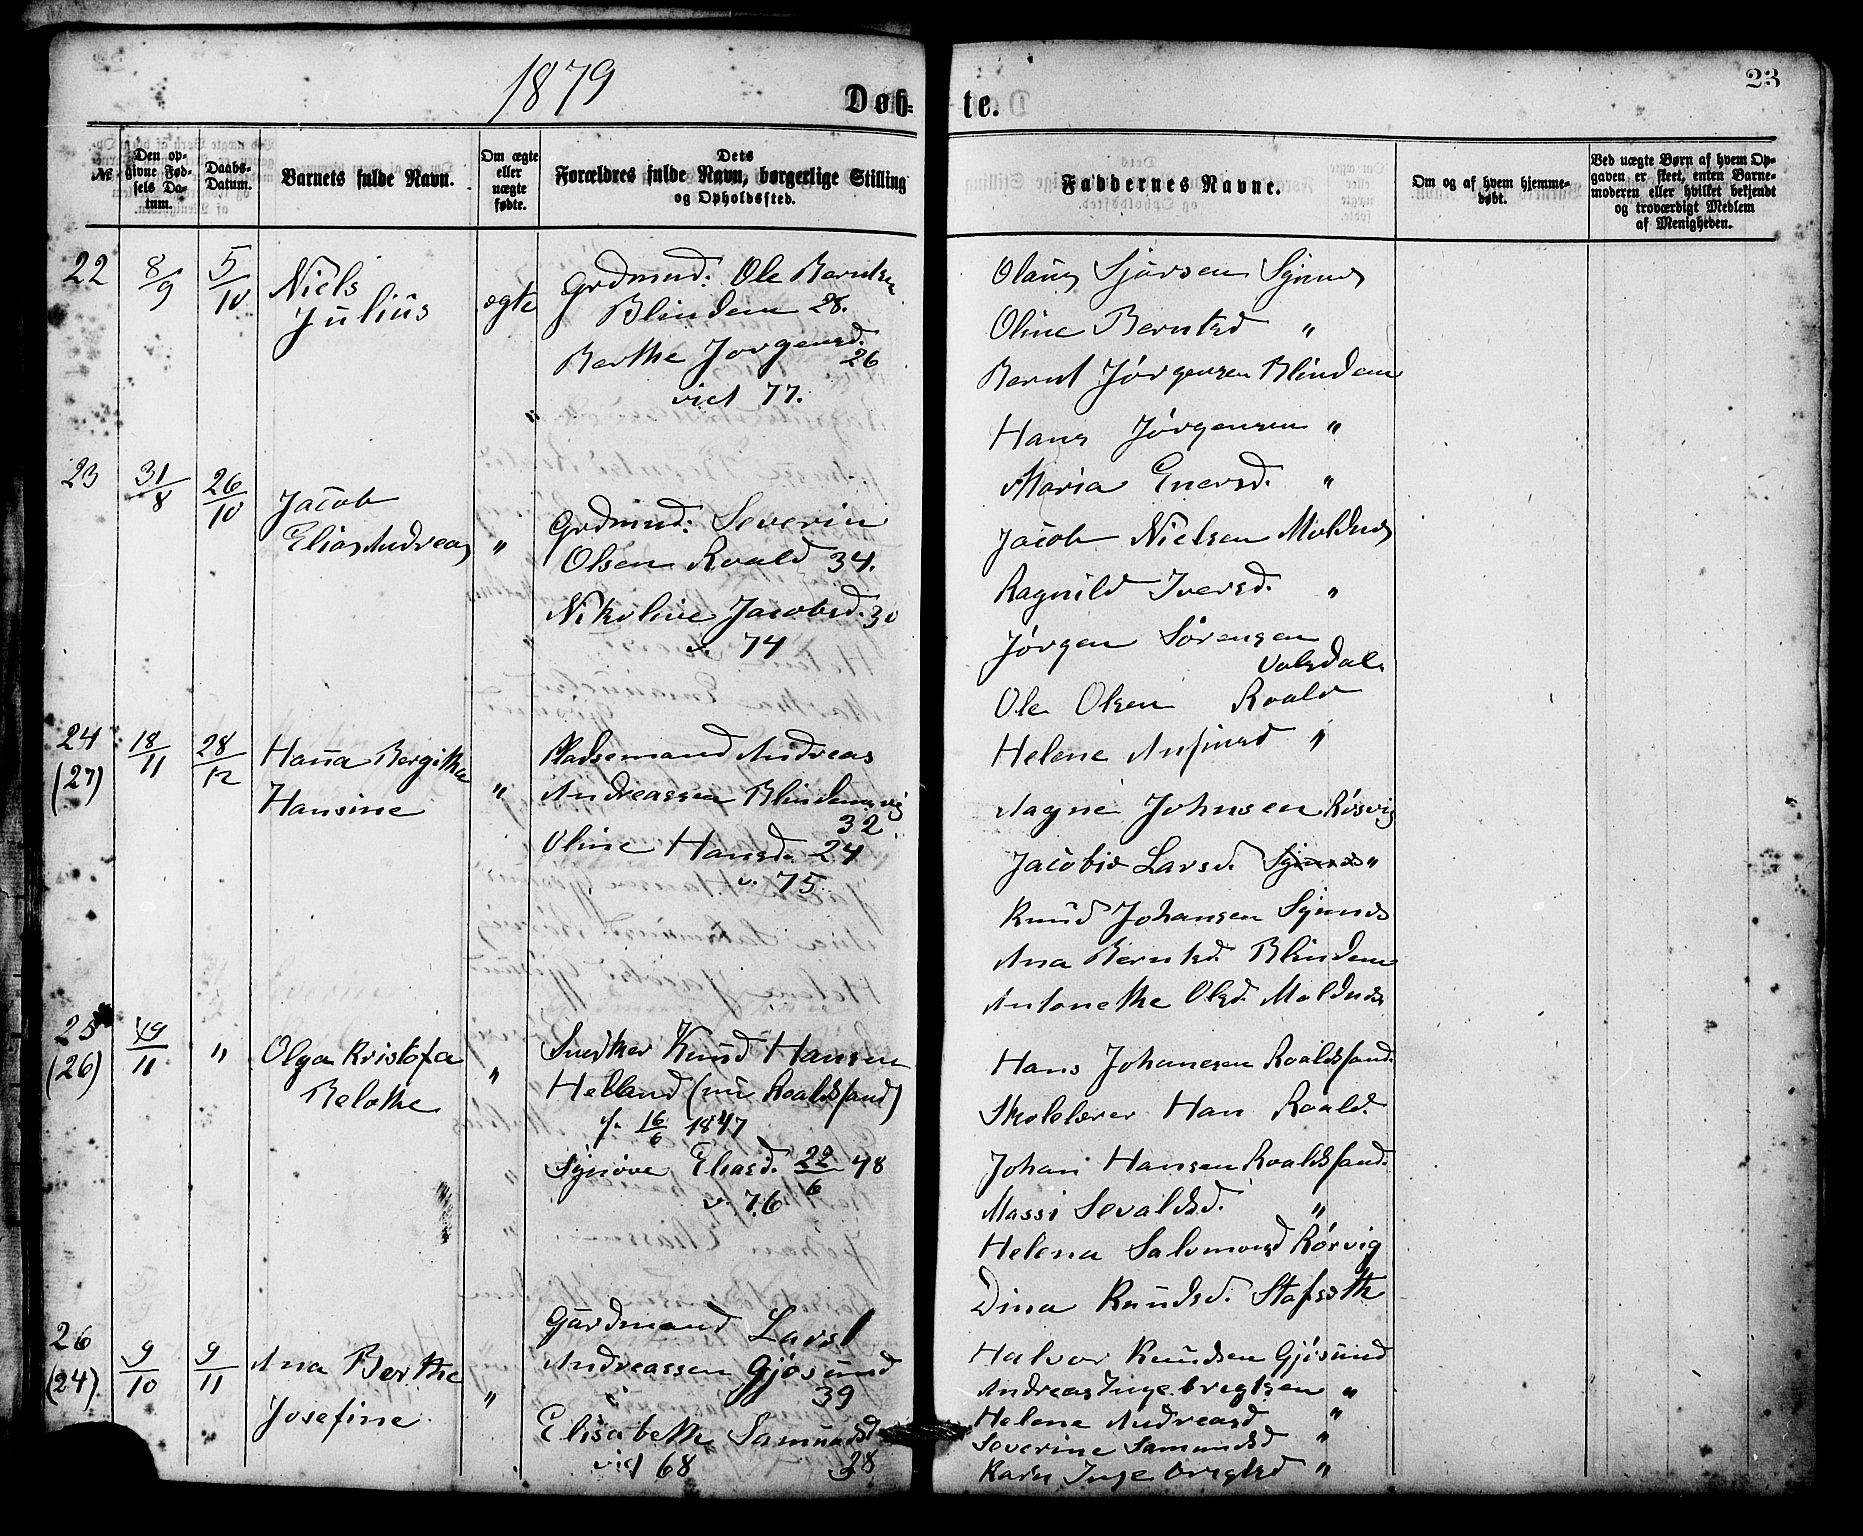 1879
Døb-
№
Den op-
givne Fød-
sels Da-
tum.
Daabs-
Datum.
Barnets fulde Navn.
Om ægte
eller
nægte
fødte.
Dets
Forældres fulde Navn, borgerlige Stilling
og Opholdssted.
22
8/9
5/10
Niels
Julius
ægte
Grdmnd: Ole Berntsen
Blindem 28.
Berthe Jørgensd.
26
viet 77.
23
31/8
26/10
Jacob
Elias Andreas
"
Grdmnd: Severin
Olsen Roald 34.
Nikoline Jacobsd. 30
v. 74
24
(27)
18/11
28/12
Hana Bergitha
Hansine
"
Pladsemand Andreas
Andreassen Blindemsvig
32
Oline Hansd. 24
v. 75
25
(26)
19/11
"
Olga Kristofa
Belothe
"
Snedker Knud Hansen
Helland (nu Roaldssand)
f. 16/6 1847
Synøve Eliasd. 22/6 48
v. 76
26
(24)
9/10
9/11
Ana Berthe
Josefine
"
Gardmand Lars
Andreassen Gjøsund
39
Elisabethe Samundsd
viet 68 38
te.
23
Faddernes Navne.
Om og af hvem hjemme-
døbt.
Ved nægte Børn af hvem Op-
gaven er skeet, enten Barne-
moderen eller hvilket bekjendt
og troværdigt Medlem
af Menigheden.
Olaus Sjursen Synnes
Oline Berntsd "
Bernt Jørgensen Blindem
Hans Jørgensen "
Maria Enersd. "
Jacob Nielsen Moldnes
Ragnild Iversd. "
Jørgen Sørensen
Valsdal.
Ole Olsen Roald
Helene Anfinsd "
Magne Johnsen Røsvig
Jacobie Larsd. "
Knud Johansen Synnes
Ana Berntsd. Blindem
Antonethe Olsd. Moldnes
Hans Johansen Roaldssand.
Skolelærer Han Roald.
Johan Hansen Roaldssand.
Massi Sevaldsd. "
Helena Salomonsd Rørvig
Dina Knudsd. Stafseth
Halvor Knudsen Gjøsund
Andreas Ingebrigtsen "
Helene Andreasd "
Severine Samundsd "
Karn Ingebrigtsd "